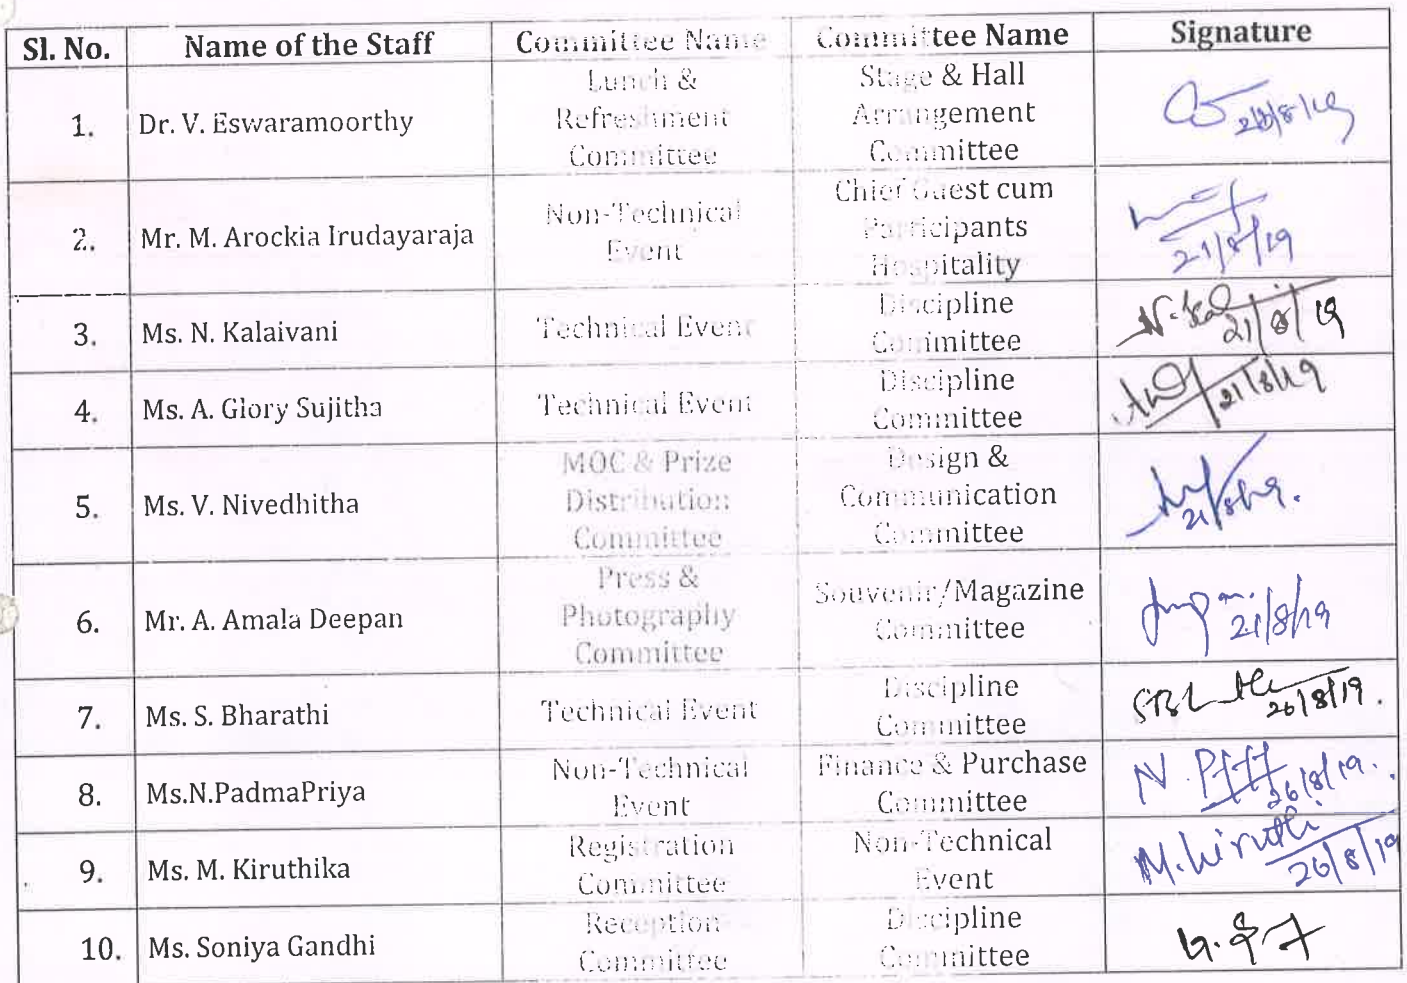 Sl. No. Name of the Staff Committee Name Committee Name Signature
1. Dr. V. Eswaramoorthy Lunch & Refreshment Committee Stage & Hall Arrangement Committee 28/8/19
2. Mr. M. Arockia Irudayaraja Non-Technical Event Chief Guest cum Participants Hospitality 21/8/19
3. Ms. N. Kalaivani Technical Event Discipline Committee N. Kal 21/8/19
4. Ms. A. Glory Sujitha Technical Event Discipline Committee 21/8/19
5. Ms. V. Nivedhitha MOC & Prize Distribution Committee Design & Communication Committee 21/8/19.
6. Mr. A. Amala Deepan Press & Photography Committee Souvenir/Magazine Committee 21/8/19
7. Ms. S. Bharathi Technical Event Discipline Committee 26/8/19.
8. Ms.N.PadmaPriya Non-Technical Event Finance & Purchase Committee N. 26/8/19.
9. Ms. M. Kiruthika Registration Committee Non-Technical Event M. Kiruthi 26/8/19
10. Ms. Soniya Gandhi Reception Committee Discipline Committee